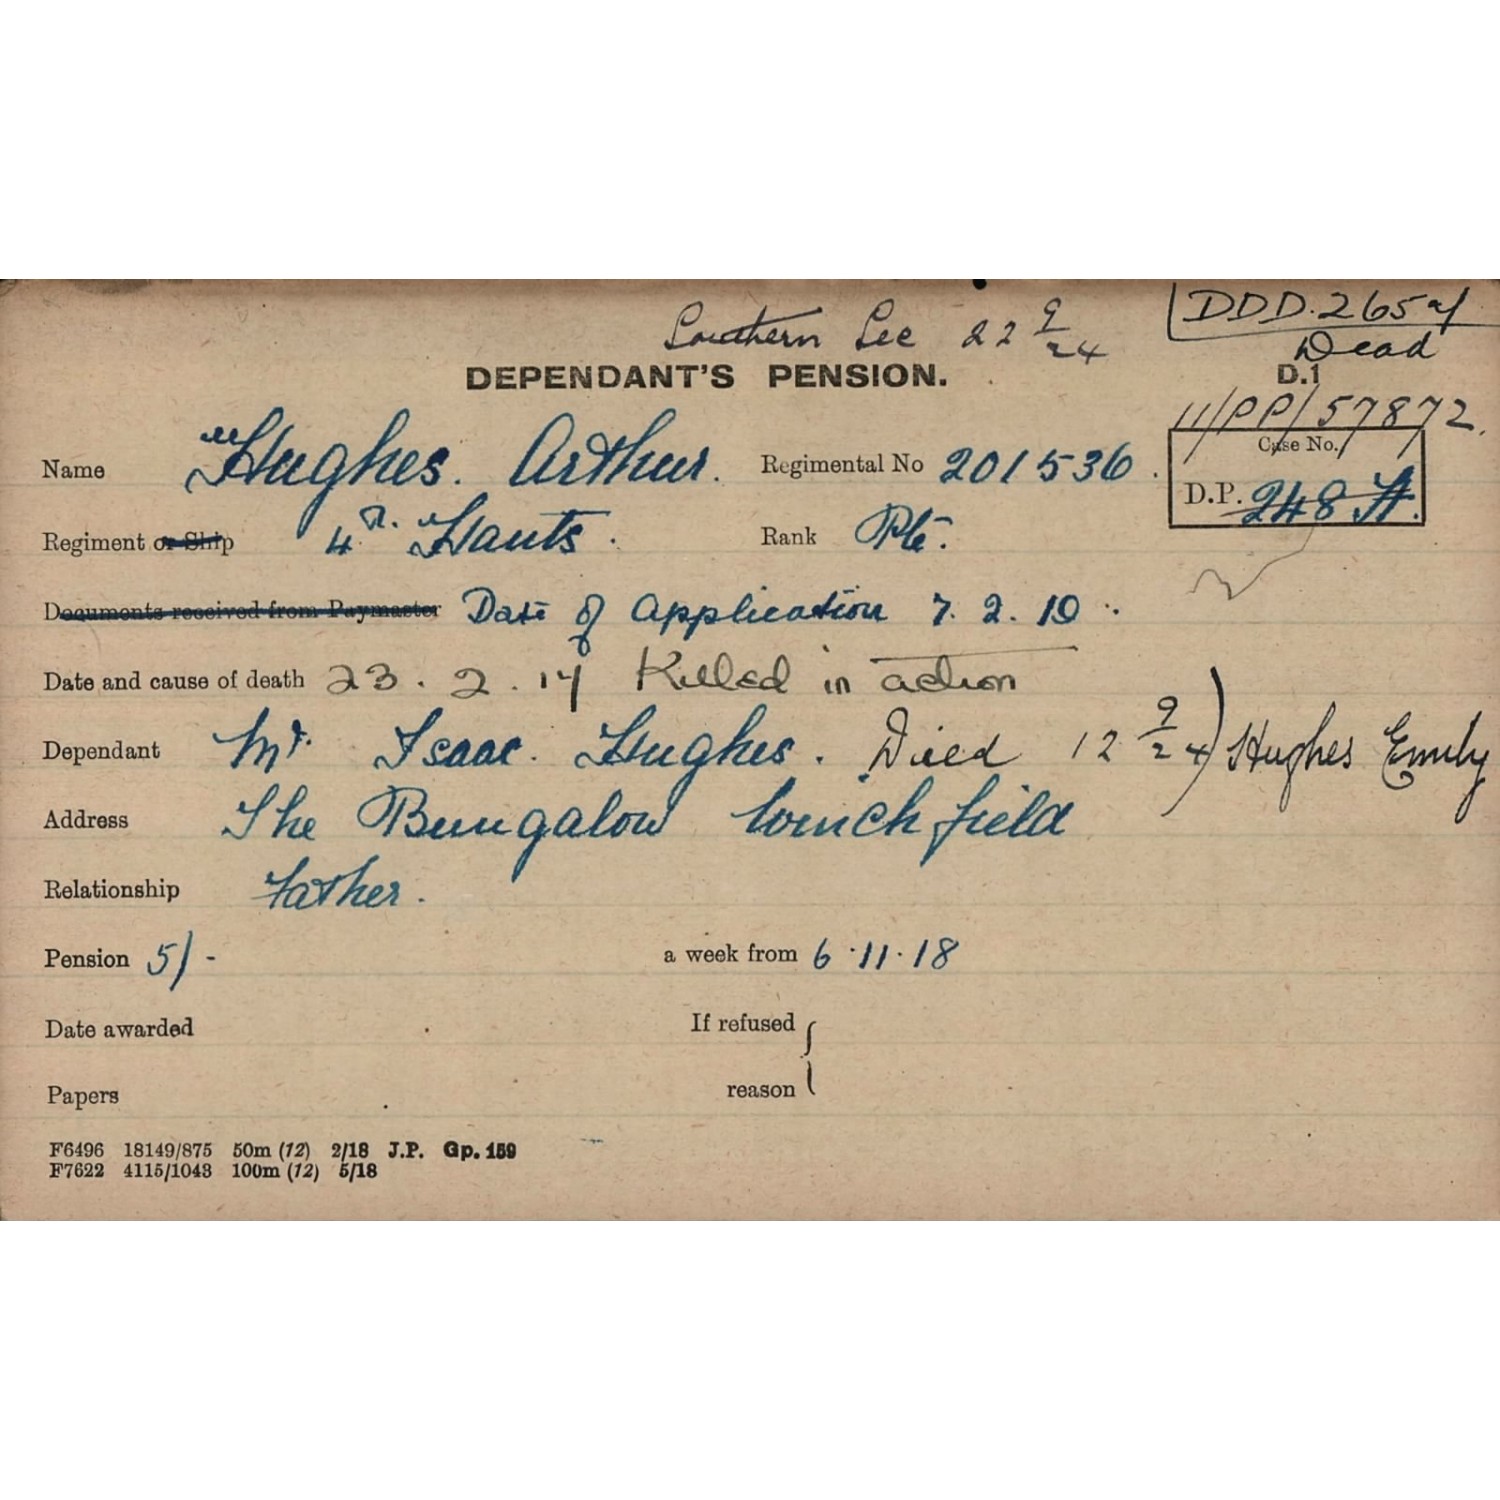 Southern Lee 22 9/24
DDD.265
Dead
DEPENDANT'S PENSION.
D.1
11/PP/57872.
Name Hughes. Arthur. Regimental No 201536.
Case No.
D.P. 248
Regiment or Ship 4th. Hants. Rank Pte.
Documents received from Paymaster Date of Application 7. 2. 19.
Date and cause of death 23. 2. 17 Killed in action
Dependant Mr. Isaac. Hughes. Died 12 9/24) Hughes Emily
Address The Bungalow Winchfield
Relationship Father.
Pension 5/- a week from 6.11.18
Date awarded If refused
Papers reason
F6496 18149/875 50m (12) 2/18 J.P. Gp. 159
F7622 4115/1043 100m (12) 5/18